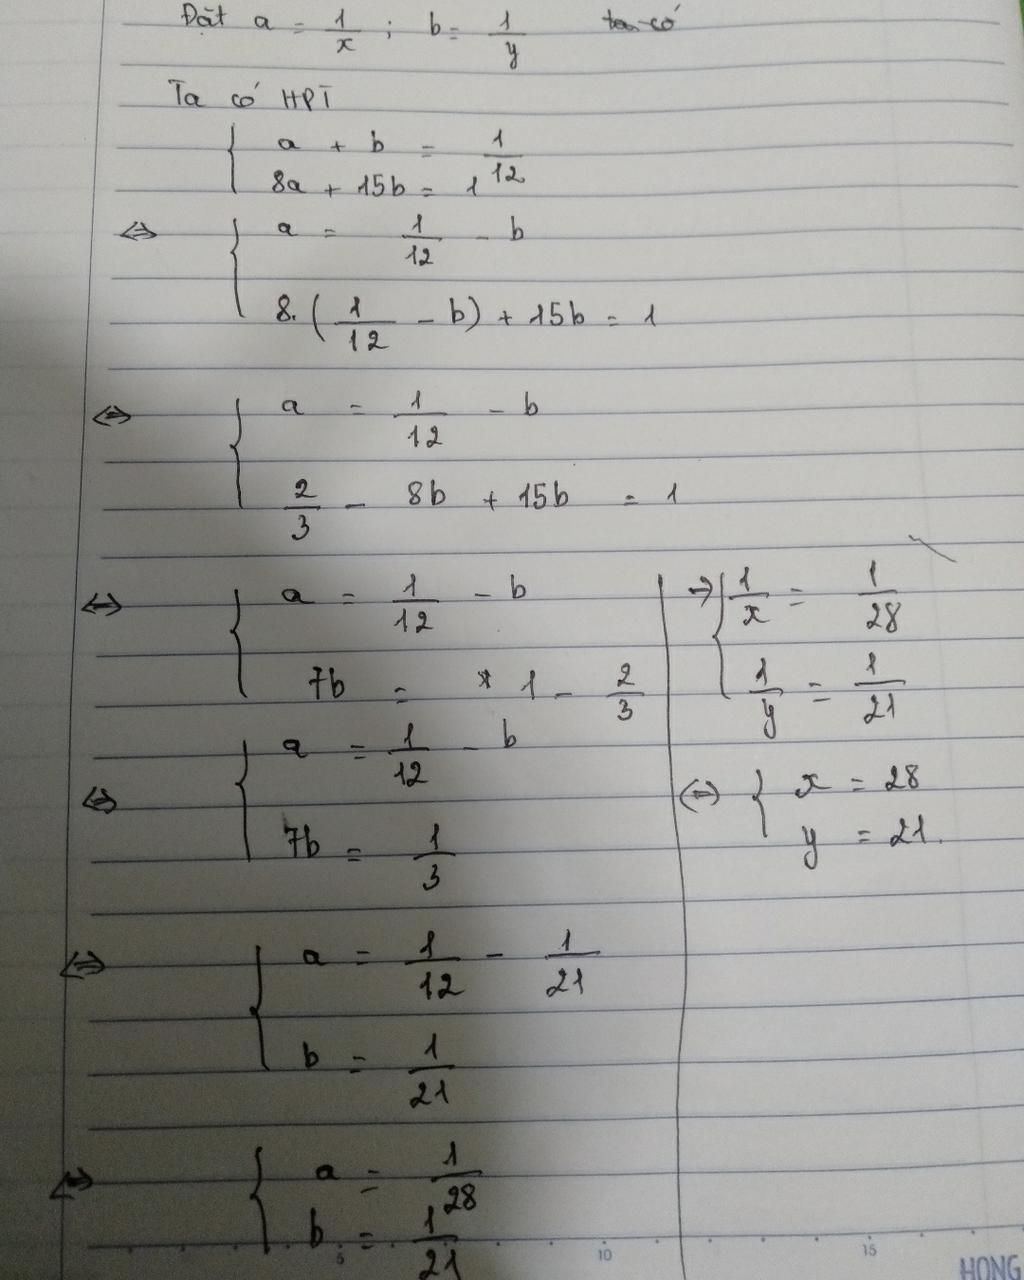 Đặt a = 1/x ; b = 1/y ta có
Ta có HPT
{ a + b = 1/12
8a + 15b = 1
⇔ { a = 1/12 - b
8. (1/12 - b) + 15b = 1
⇔ { a = 1/12 - b
2/3 - 8b + 15b = 1
⇔ { a = 1/12 - b
7b = 1 - 2/3
⇔ { a = 1/12 - b
7b = 1/3
⇔ { a = 1/12 - 1/21
b = 1/21
⇔ { a = 1/28
b = 1/21
⇒ { 1/x = 1/28
1/y = 1/21
⇔ { x = 28
y = 21.
5 10 15
HONG